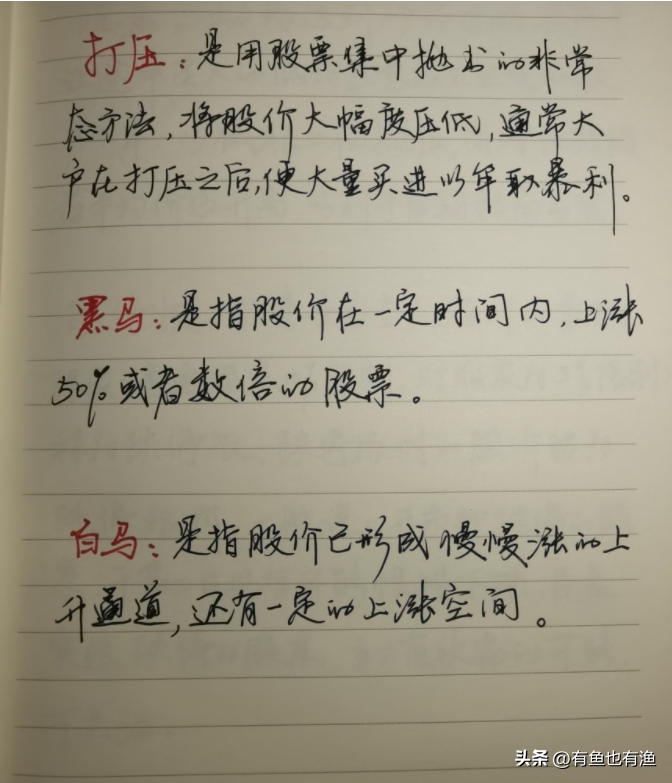 打压：是用股票集中抛出的非常
态方法，将股价大幅度压低，通常大
户在打压之后，便大量买进以牟取暴利。
黑马：是指股价在一定时间内，上涨
50%或者数倍的股票。
白马：是指股价已形成慢慢涨的上
升通道，还有一定的上涨空间。
头条 @有鱼也有渔